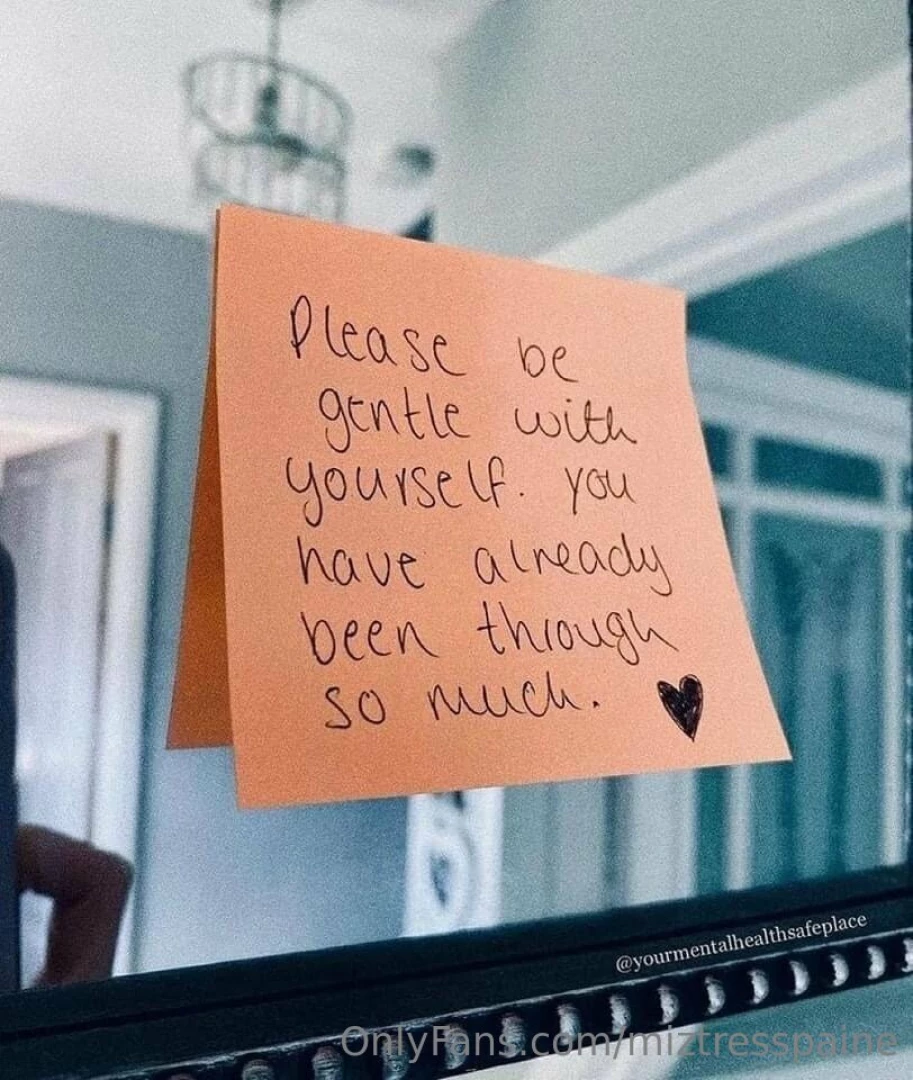 Please be
gentle with
yourself. you
have already
been through
so much.
@yourmentalhealthsafeplace
OnlyFans.com/miztresspaine